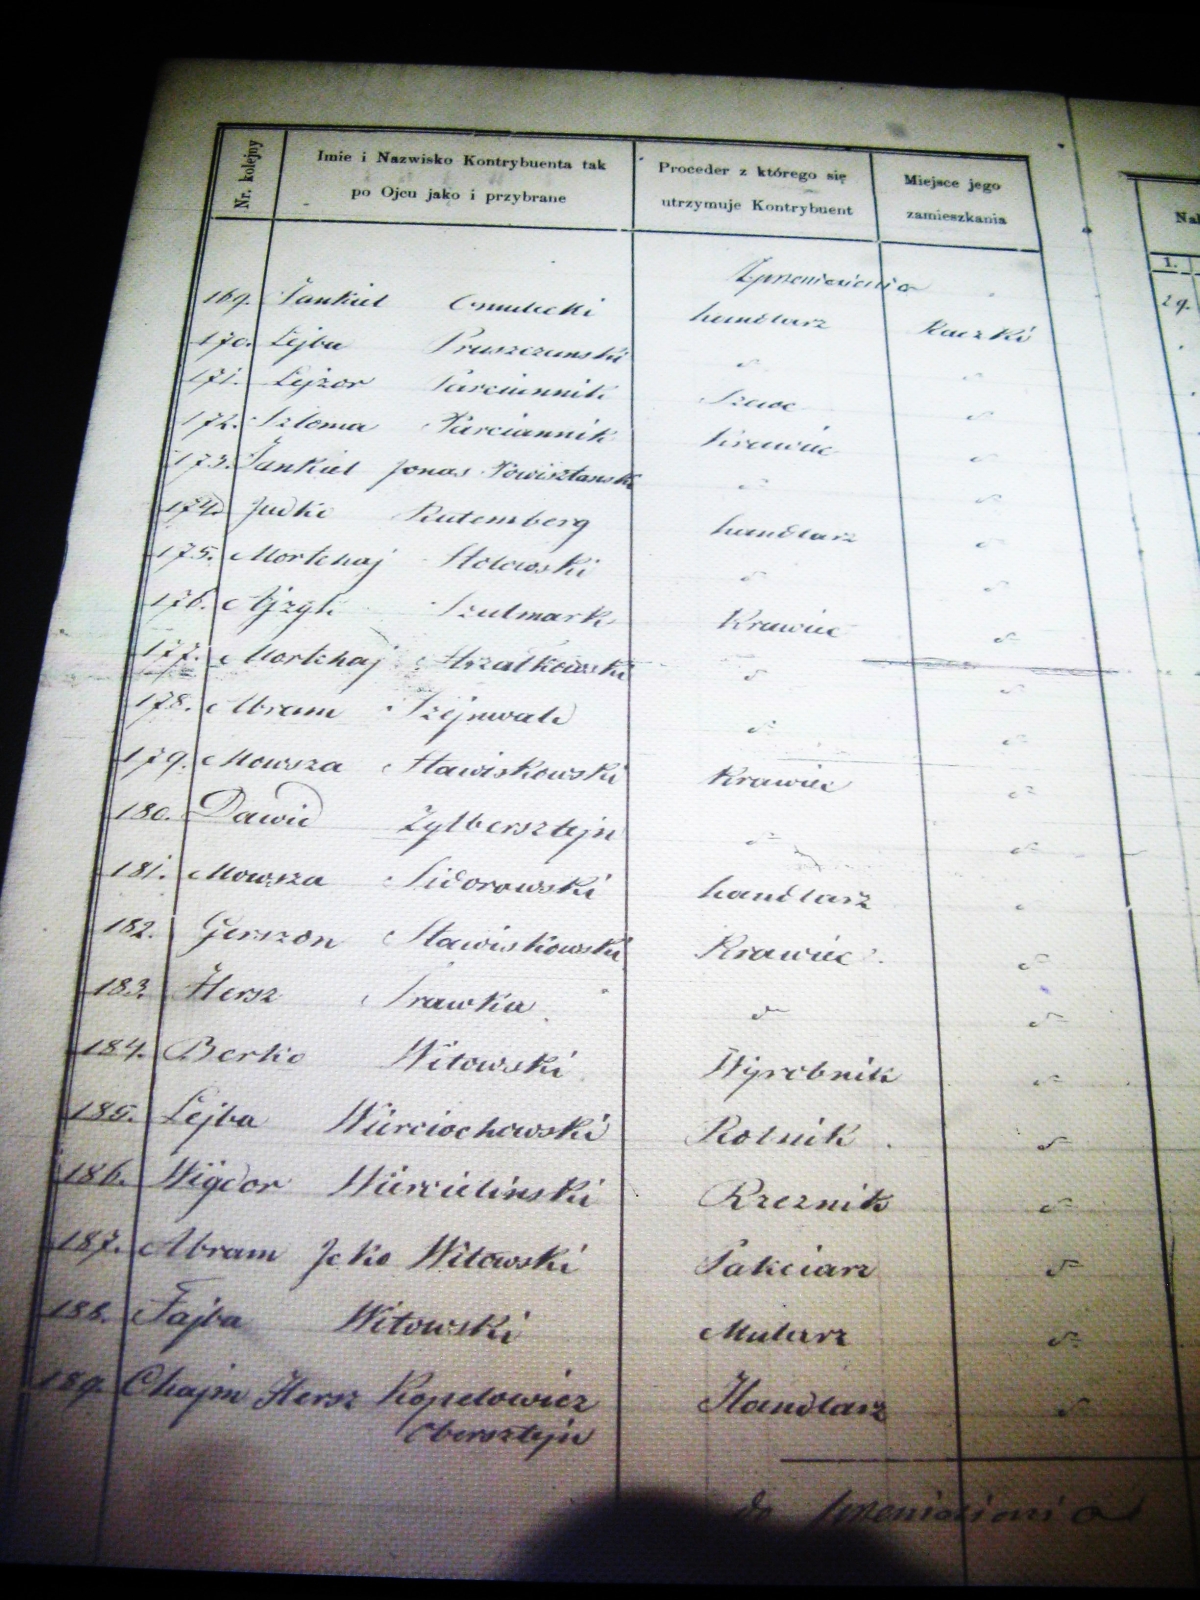 Nr. kolejny
Imie i Nazwisko Kontrybuenta tak
po Ojcu jako i przybrane
Proceder z którego się
utrzymuje Kontrybuent
Miejsce jego
zamieszkania
1.
Z przeniesienia
29.
169. Jankiel handlarz Raczki
170. Lejba Pruszczanski d
171. Lejzor Parciannik Szewc d
172. Szloma Parciannik Krawiec d
173. Jankiel Jonas d d
174. Judke Rutemberg handlarz d
175. Mortchaj d d
176. Ajzyk Szulmark Krawiec d
177. Mortchaj Strzałkowski d d
178. Abram Szejnwald d d
179. Mowsza Stawiskowski Krawiec d
180. Dawid Zylbersztejn d d
181. Mowsza Sidorowski handlarz d
182. Gerszon Stawiskowski Krawiec d
183. Hersz Srawka d d
184. Berko Witowski Wyrobnik d
185. Lejba Wierciochowski Rolnik d
186. Wigdor Wiercielinski Rzeznik d
187. Abram Icko Witowski Pakciarz d
188. Fajba Witowski Mularz d
189. Chajm Hersz Kopelowicz Handlarz d
Obersztejn
do przeniesienia